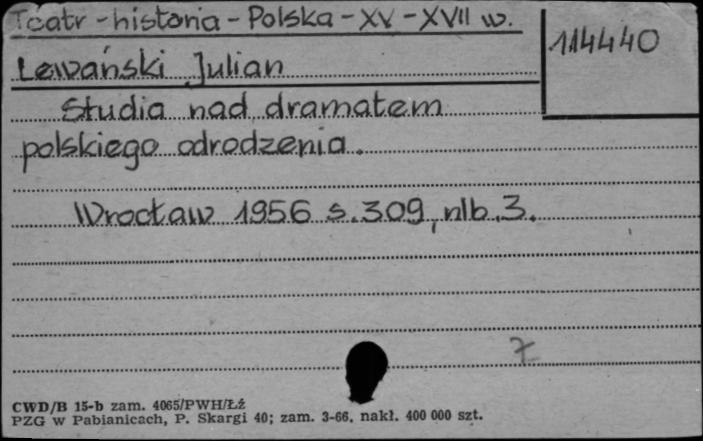 Teatr - historia - Polska - XV - XVII w.
114440
Lewański Julian
Studia nad dramatem
polskiego odrodzenia.
Wrocław 1956 s. 309, nlb. 3.
7
CWD/B 15-b zam. 4065/PWH/Łź
PZG w Pabianicach, P. Skargi 40; zam. 3-66. nakł. 400 000 szt.